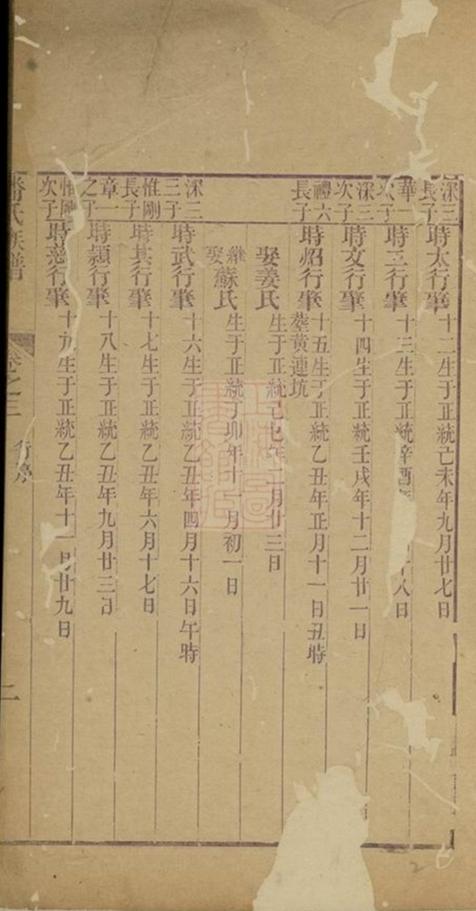 深三長子時太行肇十二生于正統己未年九月廿七日
華一次子時立行肇十三生于正統辛酉年十八日
深三次子時文行肇十四生于正統壬戌年十二月廿一日
禮六長子時炤行肇十五生于正統乙丑年正月十一日丑時
葬黃連坑
娶姜氏生于正統己巳年二月廿三日
繼娶蘇氏生于正統丁卯年十一月初一日
深二三子時武行肇十六生于正統乙丑年四月十六日午時
惟剛長子時其行肇十七生于正統乙丑年六月十七日
章一之子時顯行肇十八生于正統乙丑年九月廿三日
惟剛次子時慤行肇十九生于正統乙丑年十一月廿九日
氏族譜
卷之三
行序
二